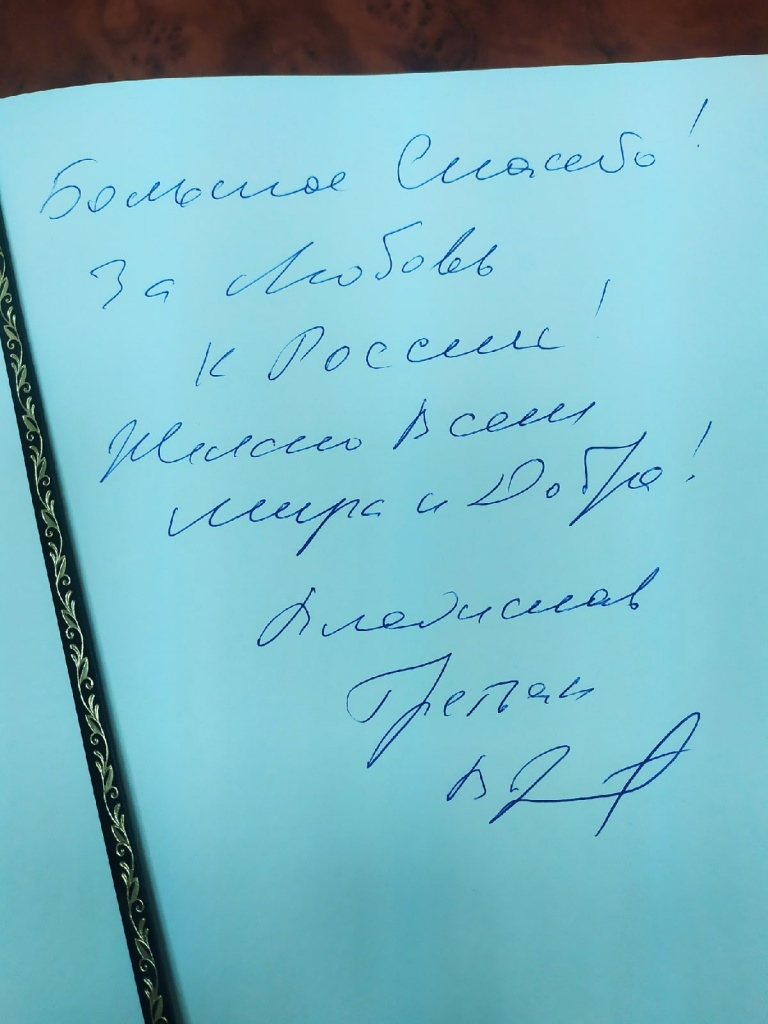 Большое Спасибо!
За Любовь
к России!
Желаю Всем
мира и Добра!
Владислав
Третьяк